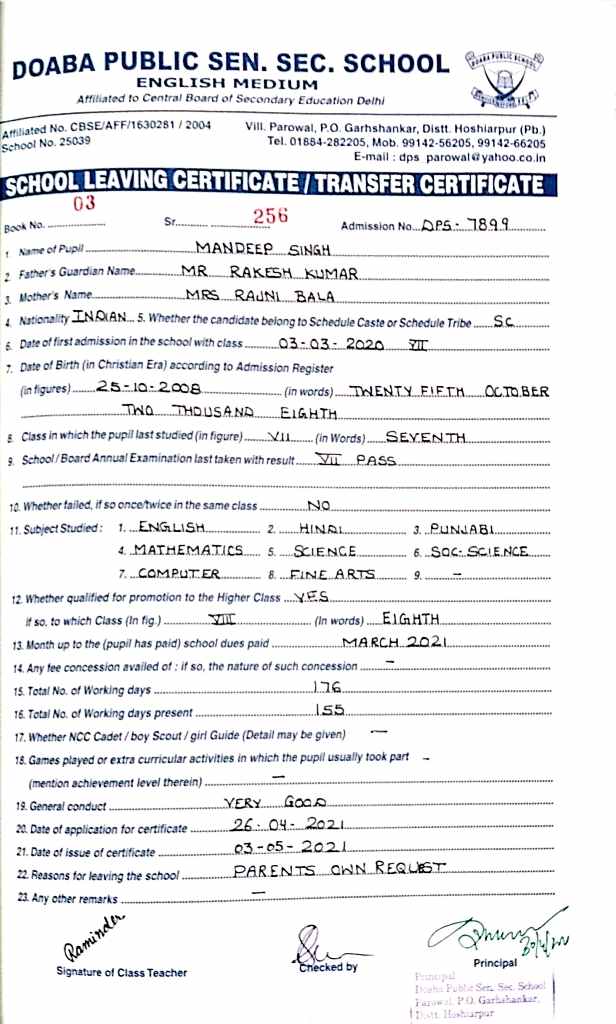 DOABA PUBLIC SEN. SEC. SCHOOL
ENGLISH MEDIUM
Affiliated to Central Board of Secondary Education Delhi
DOABA PUBLIC SCHOOL
Affiliated No. CBSE/AFF/1630281 / 2004
School No. 25039
Vill. Parowal, P.O. Garhshankar, Distt. Hoshiarpur (Pb.)
Tel. 01884-282205, Mob. 99142-56205, 99142-66205
E-mail : dps_parowal@yahoo.co.in
SCHOOL LEAVING CERTIFICATE / TRANSFER CERTIFICATE
Book No. 03 Sr. 256 Admission No. DPS-7899
1. Name of Pupil MANDEEP SINGH
2. Father's Guardian Name MR RAKESH KUMAR
3. Mother's Name MRS RAJNI BALA
4. Nationality INDIAN 5. Whether the candidate belong to Schedule Caste or Schedule Tribe SC
6. Date of first admission in the school with class 03-03-2020 VII
7. Date of Birth (in Christian Era) according to Admission Register
(in figures) 25-10-2008 (in words) TWENTY FIFTH OCTOBER
TWO THOUSAND EIGHTH
8. Class in which the pupil last studied (in figure) VII (in Words) SEVENTH
9. School / Board Annual Examination last taken with result VII PASS
10. Whether failed, if so once/twice in the same class NO
11. Subject Studied : 1. ENGLISH 2. HINDI 3. PUNJABI
4. MATHEMATICS 5. SCIENCE 6. SOC-SCIENCE
7. COMPUTER 8. FINE ARTS 9. -
12. Whether qualified for promotion to the Higher Class YES
if so, to which Class (In fig.) VIII (In words) EIGHTH
13. Month up to the (pupil has paid) school dues paid MARCH 2021
14. Any fee concession availed of : if so, the nature of such concession -
15. Total No. of Working days 176
16. Total No. of Working days present 155
17. Whether NCC Cadet / boy Scout / girl Guide (Detail may be given) -
18. Games played or extra curricular activities in which the pupil usually took part -
(mention achievement level therein) -
19. General conduct VERY GOOD
20. Date of application for certificate 26-04-2021
21. Date of issue of certificate 03-05-2021
22. Reasons for leaving the school PARENTS OWN REQUEST
23. Any other remarks -
Raminder
Signature of Class Teacher
Checked by
Principal
Principal
Doaba Public Sen. Sec. School
Parowal, P.O. Garhshankar,
Distt. Hoshiarpur